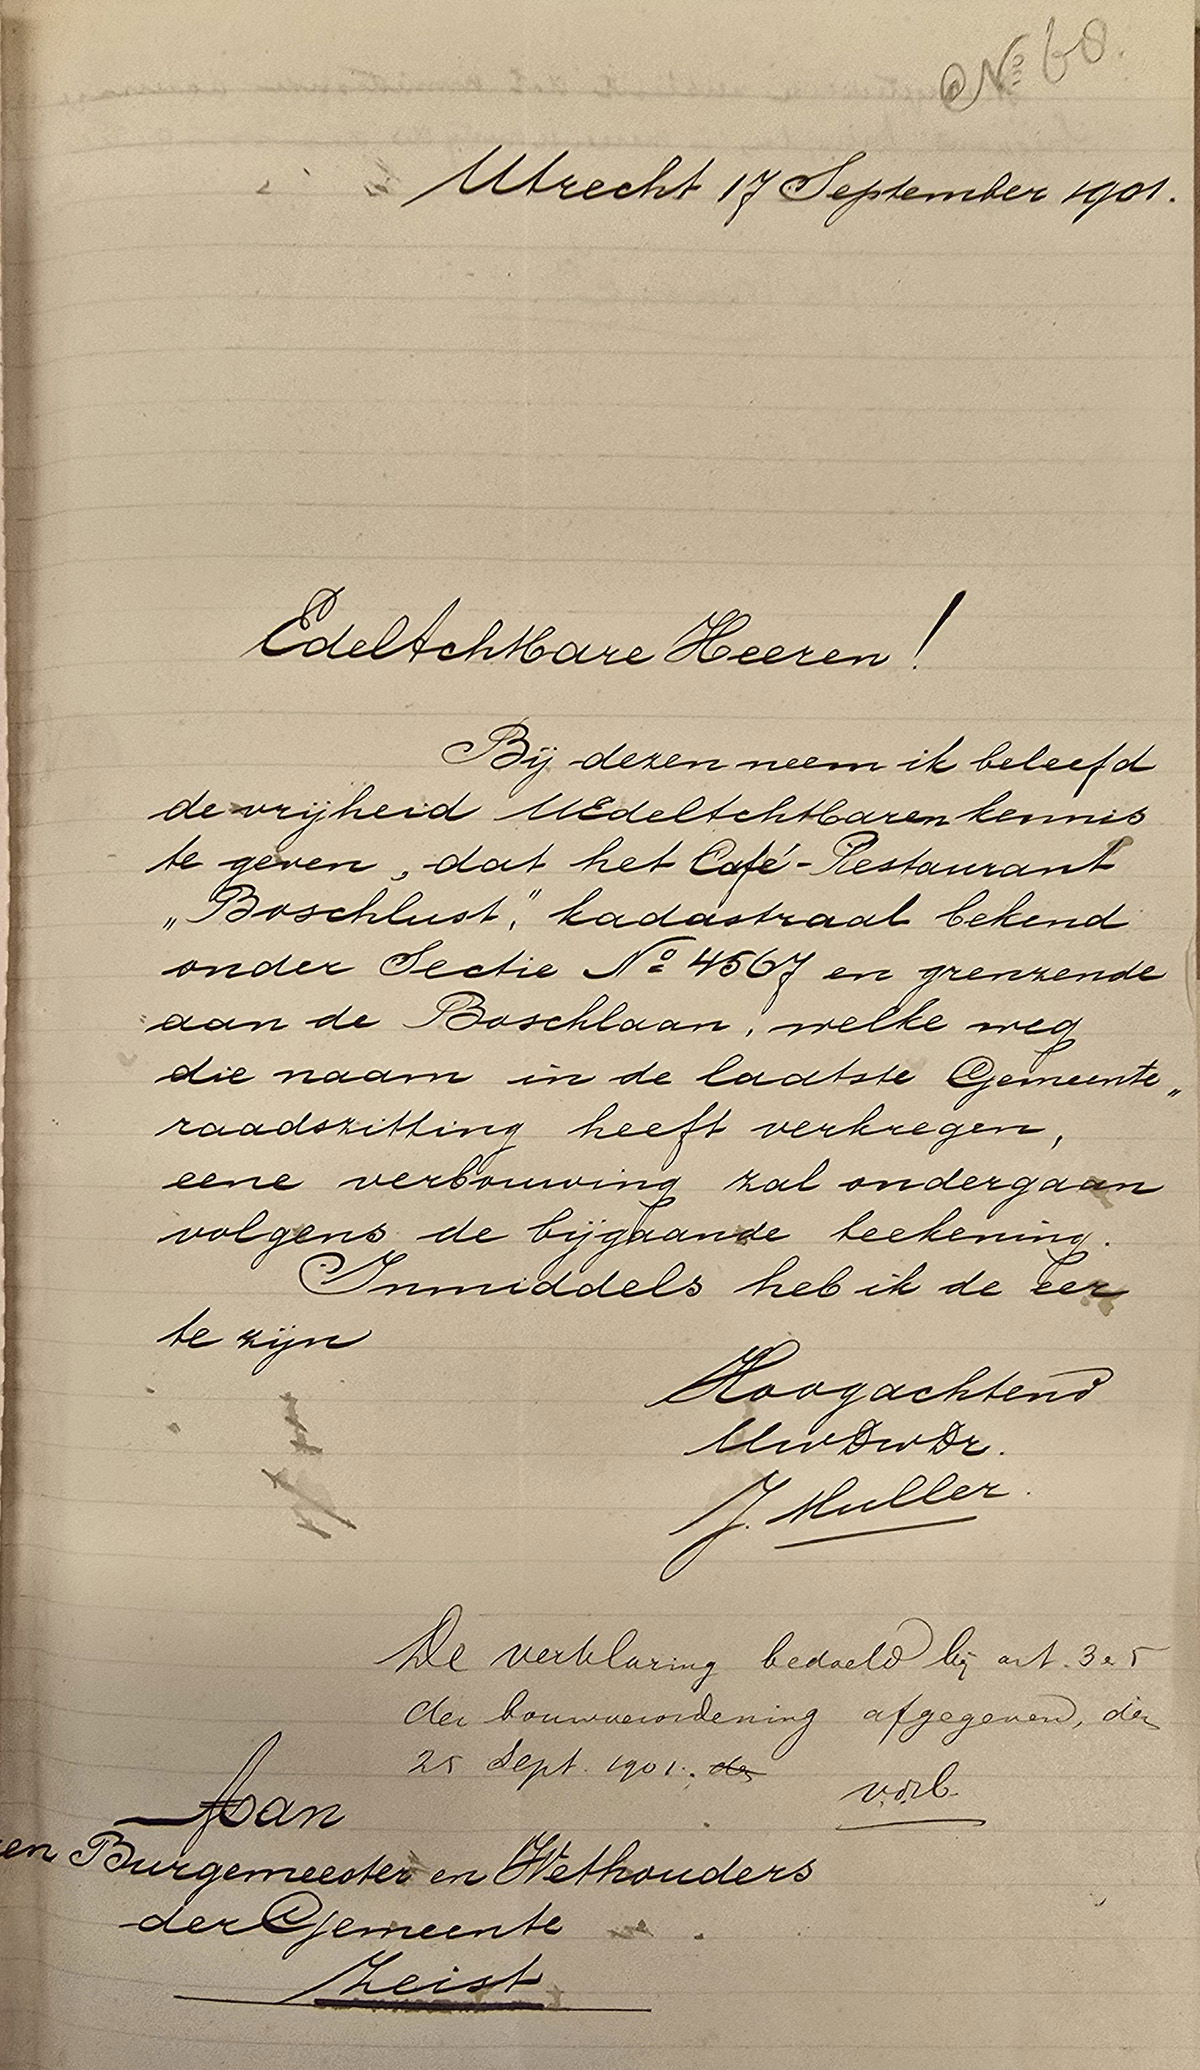 No 60.
Utrecht 17 September 1901.
EdelAchtbare Heeren!
Bij dezen neem ik beleefd
de vrijheid UEdelAchtbaren kennis
te geven, dat het Café-Restaurant
„Boschlust," kadastraal bekend
onder Sectie No 4567 en grenzende
aan de Boschlaan, welke weg
die naam in de laatste Gemeente„
raadszitting heeft verkregen,
eene verbouwing zal ondergaan
volgens de bijgaande teekening.
Inmiddels heb ik de eer
te zijn
Hoogachtend
UwDwDr.
J. Muller.
De verklaring bedoeld bij art. 3 e 5
der bouwverordening afgegeven, den
25 Sept. 1901.
Aan
en Burgemeester en Wethouders
der Gemeente
Zeist